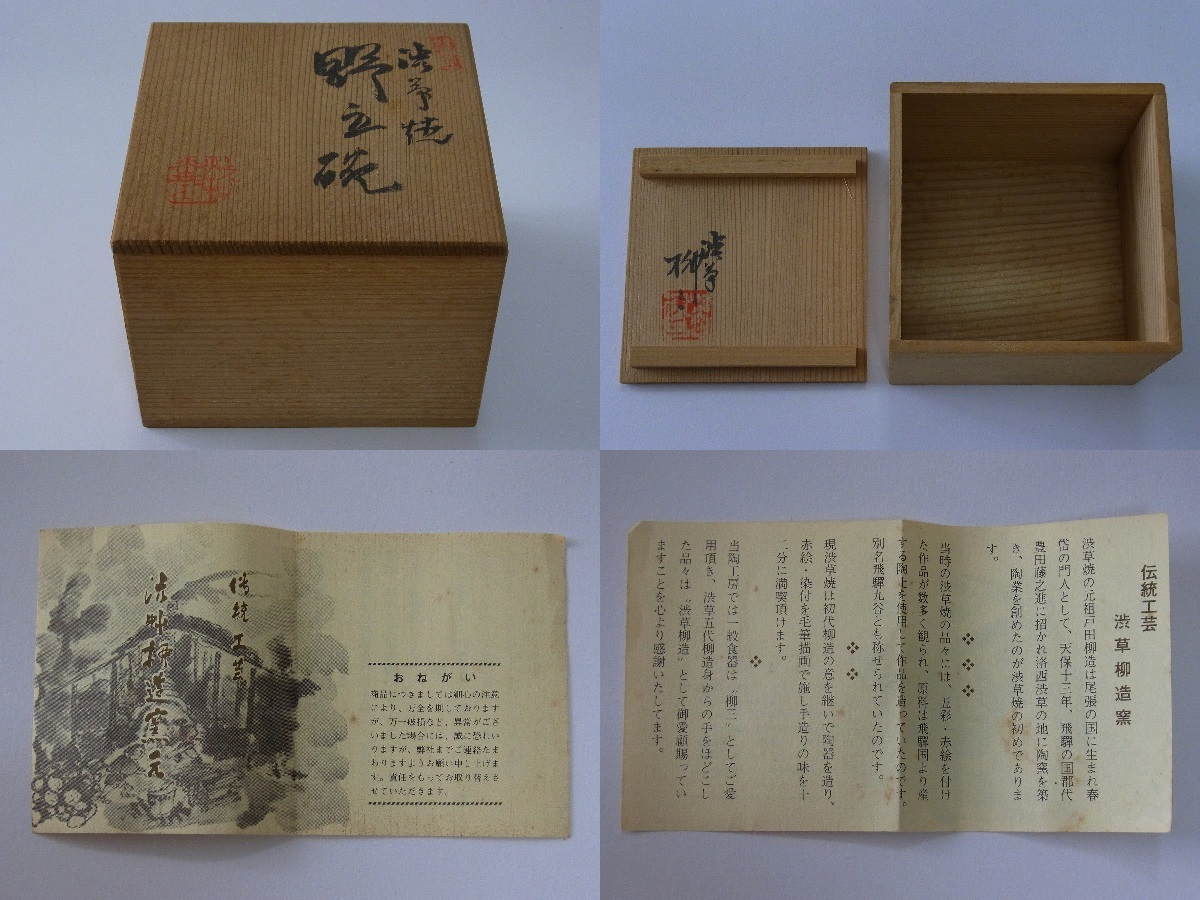 渋草焼
野立碗
渋草
柳
伝統工芸
渋草柳造窯元
おねがい
商品につきましては細心の注意
により、万全を期しております
が、万一破損など、異常がござ
いました場合には、誠に恐れい
りますが、弊社までご連絡たま
わりますようお願い申し上げま
す。責任をもってお取り替えさ
せていただきます。
伝統工芸
渋草柳造窯
渋草焼の元祖戸田柳造は尾張の国に生まれ春
岱の門人として、天保十三年、飛騨の国郡代
豊田藤之進に招かれ洛西渋草の地に陶窯を築
き、陶業を創めたのが渋草焼の初めでありま
す。
当時の渋草焼の品々には、五彩・赤絵を付け
た作品が数多く観られ、原料は飛騨国より産
する陶土を使用して作品を造っていたのです。
別名飛騨九谷とも称せられていたのです。
現渋草焼は初代柳造の意を継いで陶器を造り、
赤絵・染付を毛筆描画で施し手造りの味を十
二分に満喫頂けます。
当陶工房では一般食器は〝柳三〟としてご愛
用頂き、渋草五代柳造身からの手をほどこし
た品々は〝渋草柳造〟として御愛顧賜ってい
ますことを心より感謝いたしてます。